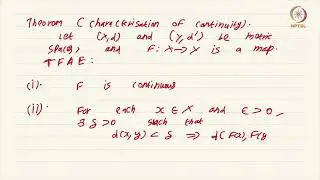 Theorem (characterisation of continuity).
Let (X,d) and (Y,d') be metric
spaces and F: X→Y is a map.
TFAE:
(i). F is continuous
(ii). For each x ∈ X and ε > 0,
∃ δ > 0 such that
d(x,y) < δ ⇒ d(F(x), F(y
NPTEL